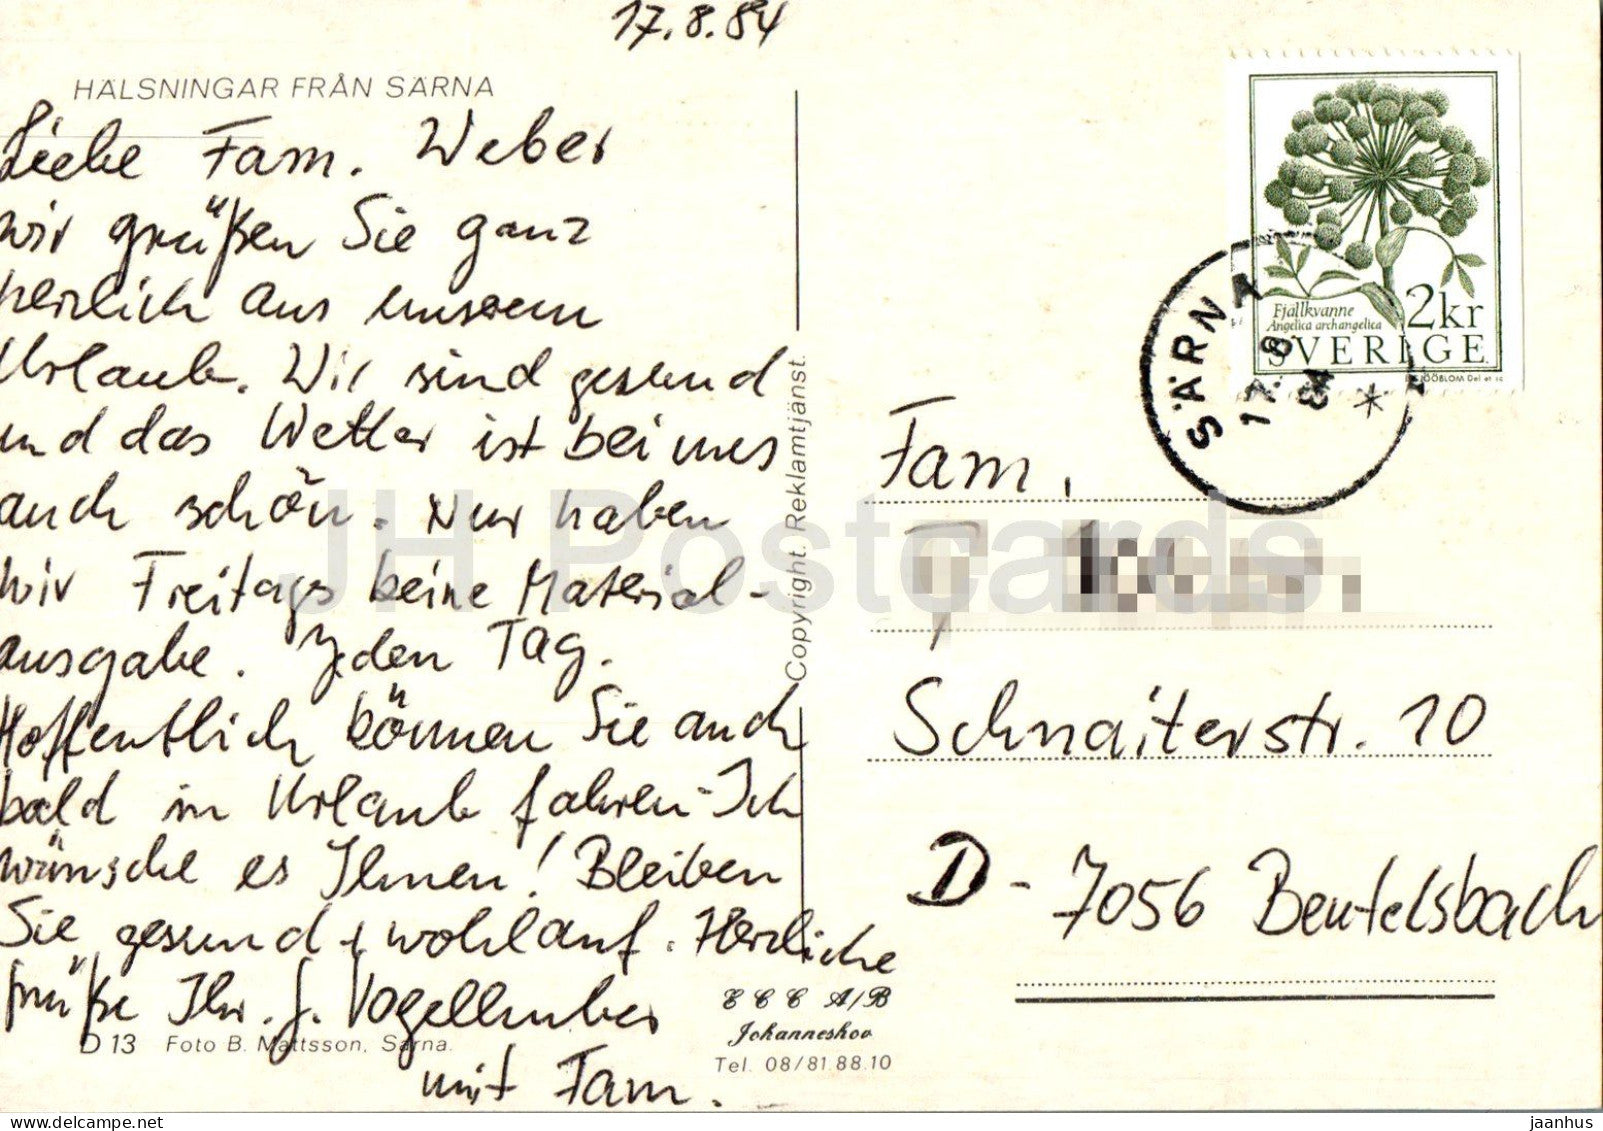 17.8.84
HÄLSNINGAR FRÅN SÄRNA
Liebe Fam. Weber
wir grüßen Sie ganz
herzlich aus unserem
Urlaub. Wir sind gesund
und das Wetter ist bei uns
auch schön. Nur haben
wir Freitags keine Material-
ausgabe. Jeden Tag.
Hoffentlich können Sie auch
bald in Urlaub fahren - Ich
wünsche es Ihnen! Bleiben
Sie gesund + wohlauf. Herzliche
Grüße Ihr. J. Vogellhuber
mit Fam.
D 13 Foto B. Mattsson, Särna.
Copyright. Reklamtjänst.
C C C A/B
Johanneshov
Tel. 08/81.88.10
Fjällkvanne
Angelica archangelica
2kr
SVERIGE
SÄRNA
17.8.84
Fam.
Schnaiterstr. 10
D - 7056 Beutelsbach
JH Postcards
jaanhus